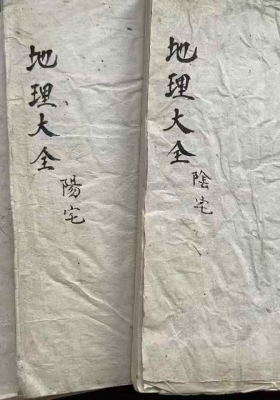 地理大全
陰宅
地理大全
陽宅